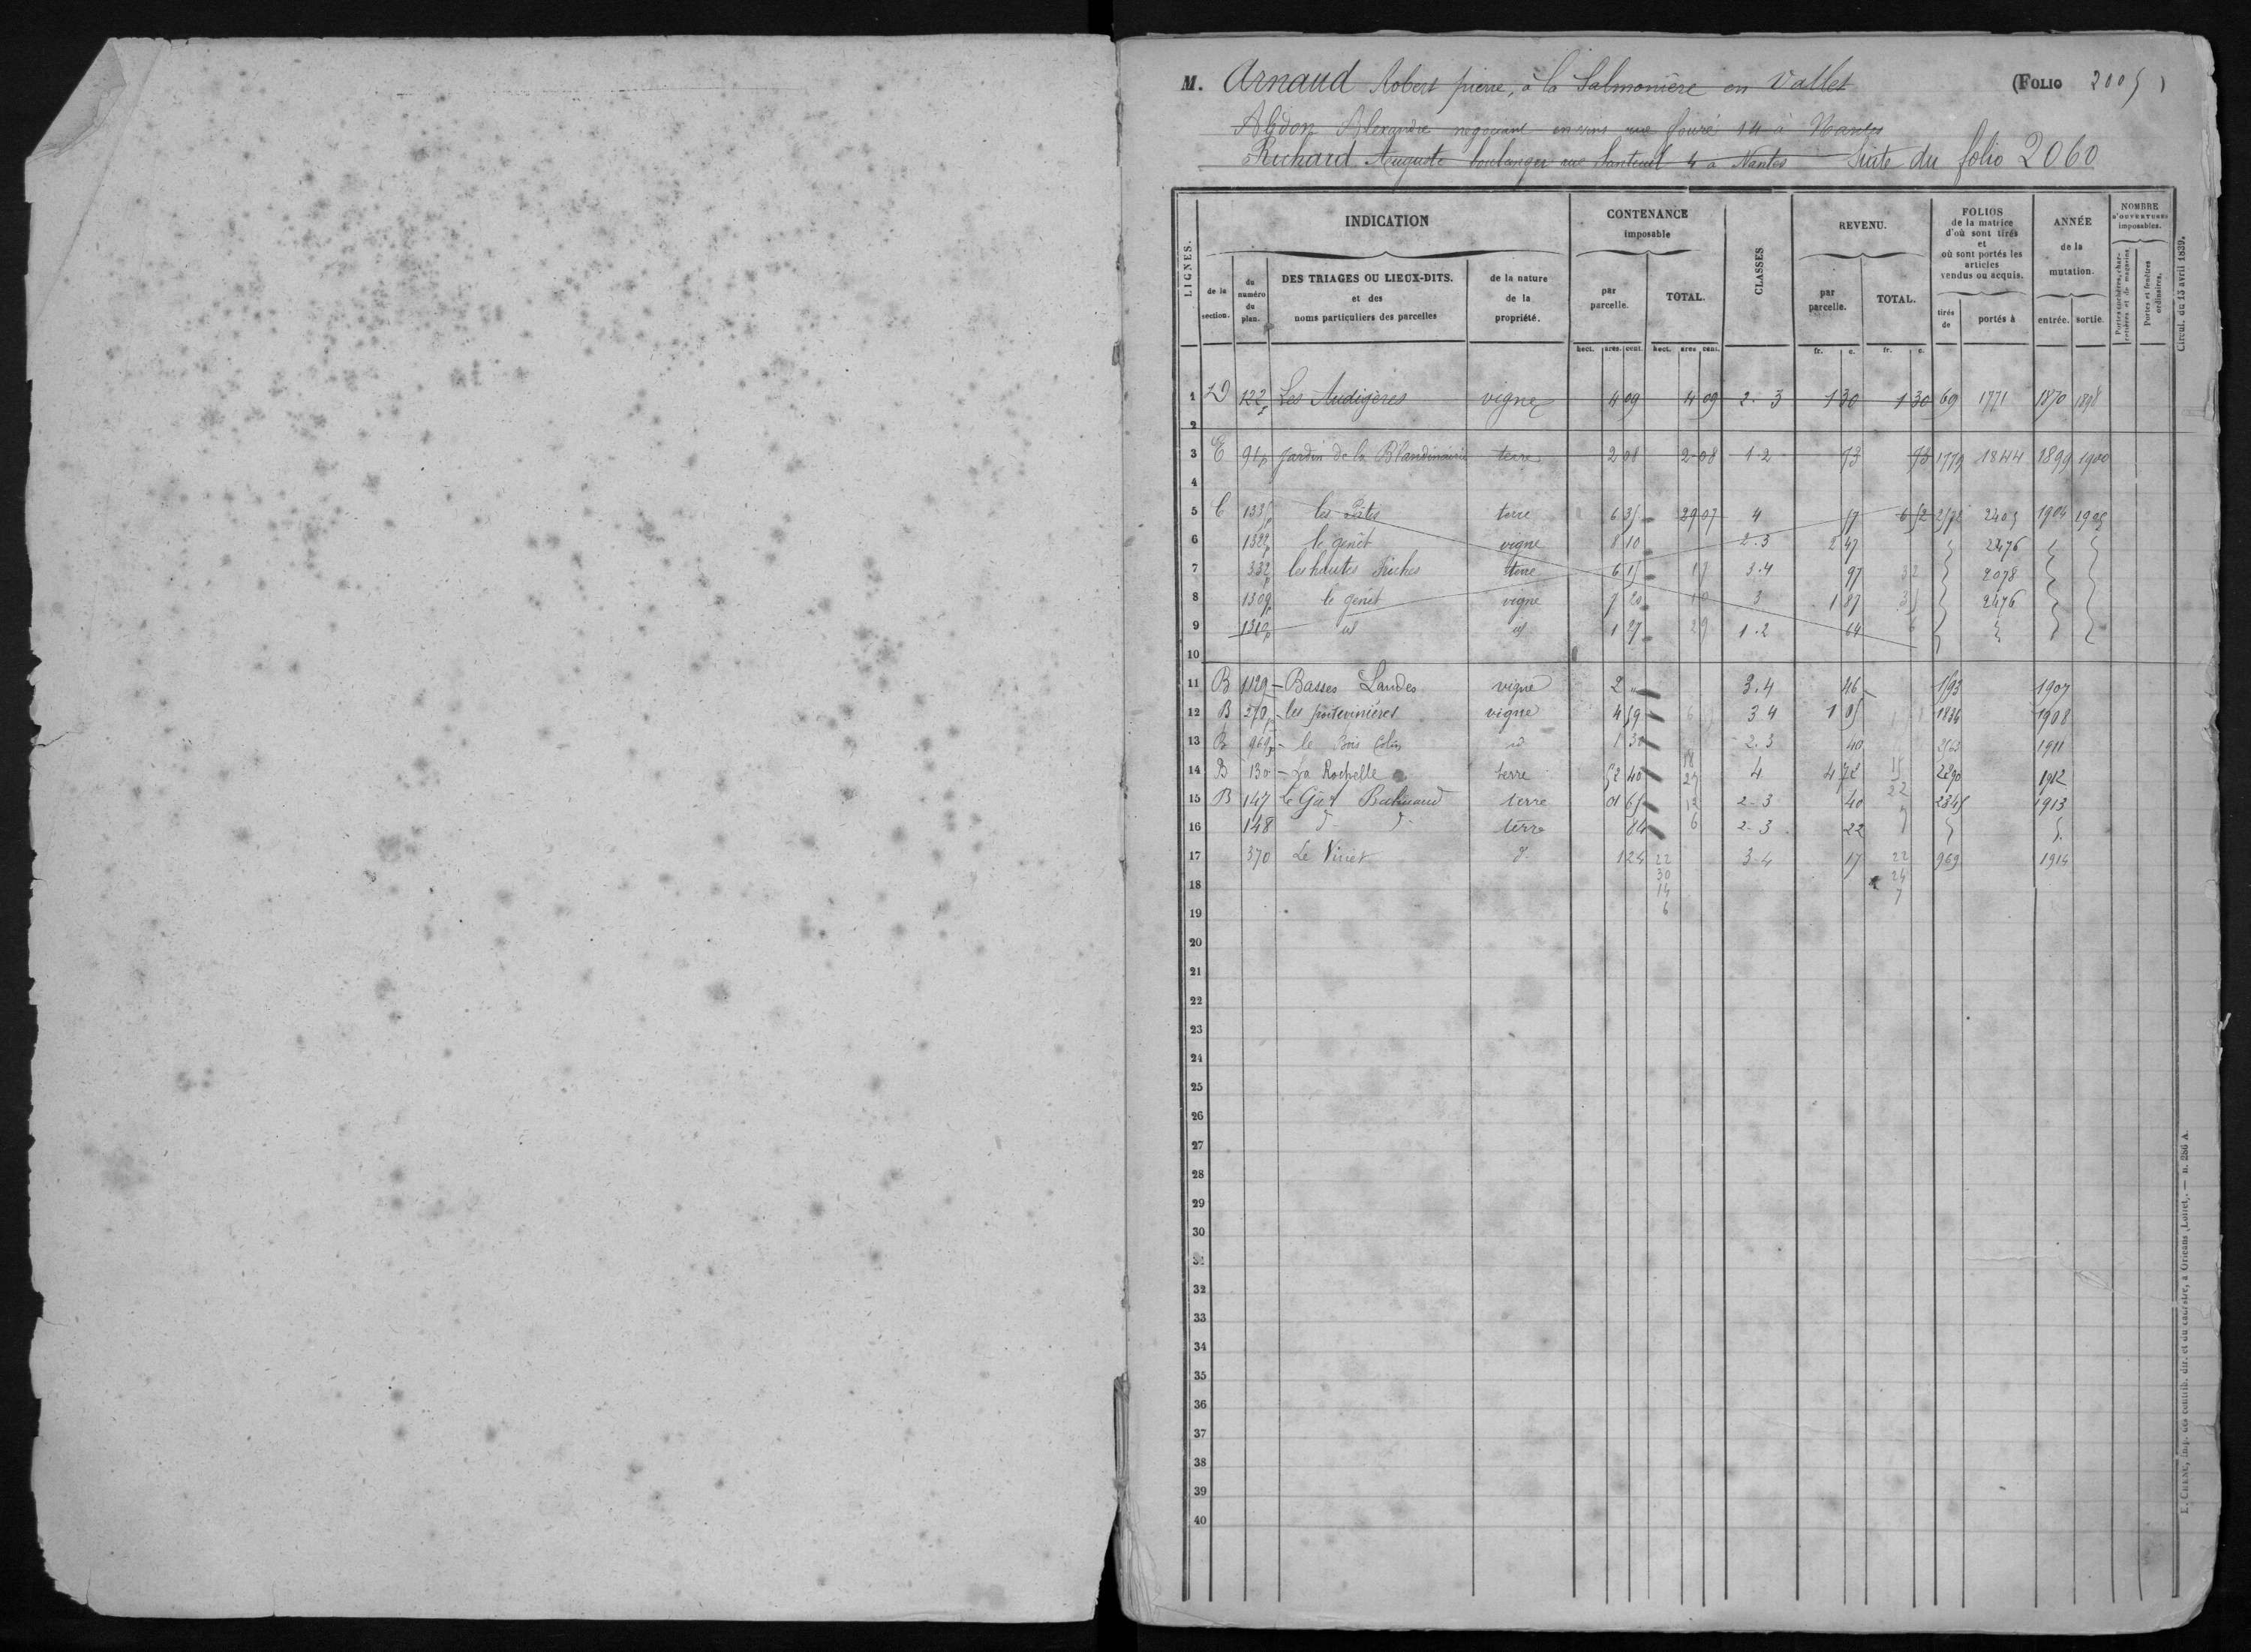 M. Arnaud Robert pierre, à la Salmonière en Vallet (FOLIO 2005)
Abdon Alexandre négociant en vins rue fouré 14 à Nantes
Richard Auguste boulanger rue Santeuil 4 à Nantes Suite du folio 2060
LIGNES. INDICATION CONTENANCE imposable CLASSES REVENU. FOLIOS de la matrice d'où sont tirés et où sont portés les articles vendus ou acquis. ANNÉE de la mutation. NOMBRE D'OUVERTURES imposables.
de la section. du numéro du plan. DES TRIAGES OU LIEUX-DITS. et des noms particuliers des parcelles de la nature de la propriété. par parcelle. TOTAL. par parcelle. TOTAL. tirés de portés à entrée. sortie. Portes et fenêtres ordinaires.
hect. ares. cent. hect. ares cent. fr. c. fr. c.
1 D 122p Les Audigères vigne 4 09 4 09 2-3 1 30 1 30 69 1771 1870 1898
2
3 E 91p Jardin de la Blandinairie terre 2 08 2 08 1-2 73 73 1779 1844 1899 1900
4
5 C 1335p terre 6 35 29 07 4 57 6 52 2405 1904 1905
6 1322p le genêt vigne 8 10 2.3 2 47 2476
7 332p les hautes friches terre 6 15 3.4 97 2078
8 1309p le genêt vigne 7 20 3 1 87 2476
9 1310p id id 1 27 1.2 64
10
11 B 1129 Basses Landes vigne 2 " 3.4 46 1593 1907
12 B 270p les poitevinières vigne 4 59 3 4 1 05 1836 1908
13 B 969p le Bois Colin id 1 30 2.3 40 1911
14 B 130 La Rochelle terre 52 40 4 4 72 2290 1912
15 B 147 Le Gât terre 01 65 2-3 40 2345 1913
16 148 d° d° terre 84 2-3 22
17 370 Le Vinet d° 1 24 3-4 17 969 1914
18
19
20
21
22
23
24
25
26
27
28
29
30
31
32
33
34
35
36
37
38
39
40
Circul. du 15 avril 1839.